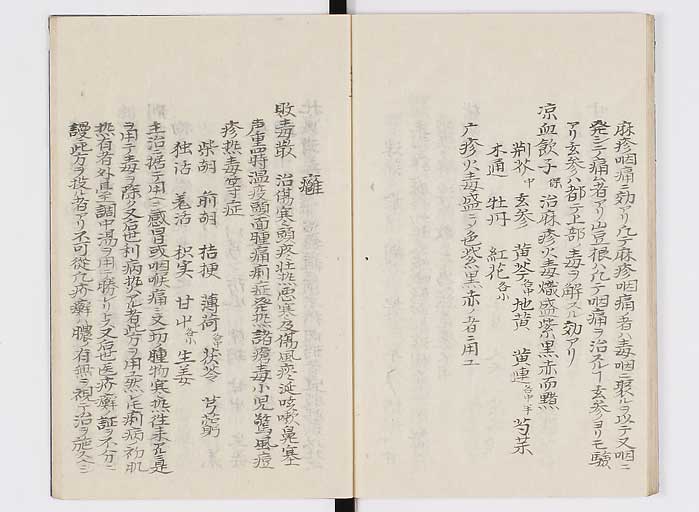 麻疹咽痛ニ効アリ凡テ麻疹咽痛者ハ毒咽ニ聚ルヲ以テ又咽ニ
発シテ痛者アリ豈根ハ凡テ咽痛ヲ治スルー玄参ヨリモ験
アリ玄参ハ都テ上部ノ毒ヲ解スル効アリ
凉血飲子 治麻疹火毒熾盛紫黒赤而黯
荊芥中 玄参 黄芩各中 地黄 黄連各中半 芍薬
木通 牡丹 紅花各小
广疹火毒盛ニ〆色紫黒赤ノ者ニ用ユ
癰
敗毒散 治傷寒頭疼壮熱悪寒及傷風痰涎咳嗽鼻塞
声重四時温疫頭面腫痛痢症発熱諸瘡毒小児驚風痘
疹热毒等症
柴胡 前胡 桔梗 薄荷各中 茯苓 芎藭
独活 羌活 枳実 甘中各小 生姜
主治ニ据テ用ヘシ感冒或咽喉痛ニ又切腫物寒熱往来
ヲ用テ毒ヲ除久又后世利病熱アル者此方ヲ用然レ𪜈痢病初肌
热有者外臺調中湯ヲ用テ勝レリトス又后世医疥癬証ヲ不分ニ
謾此方ヲ投ル者アリ不可従凡疥癬ハ膿ノ有無ヲ視テ治ヲ施ヘシ